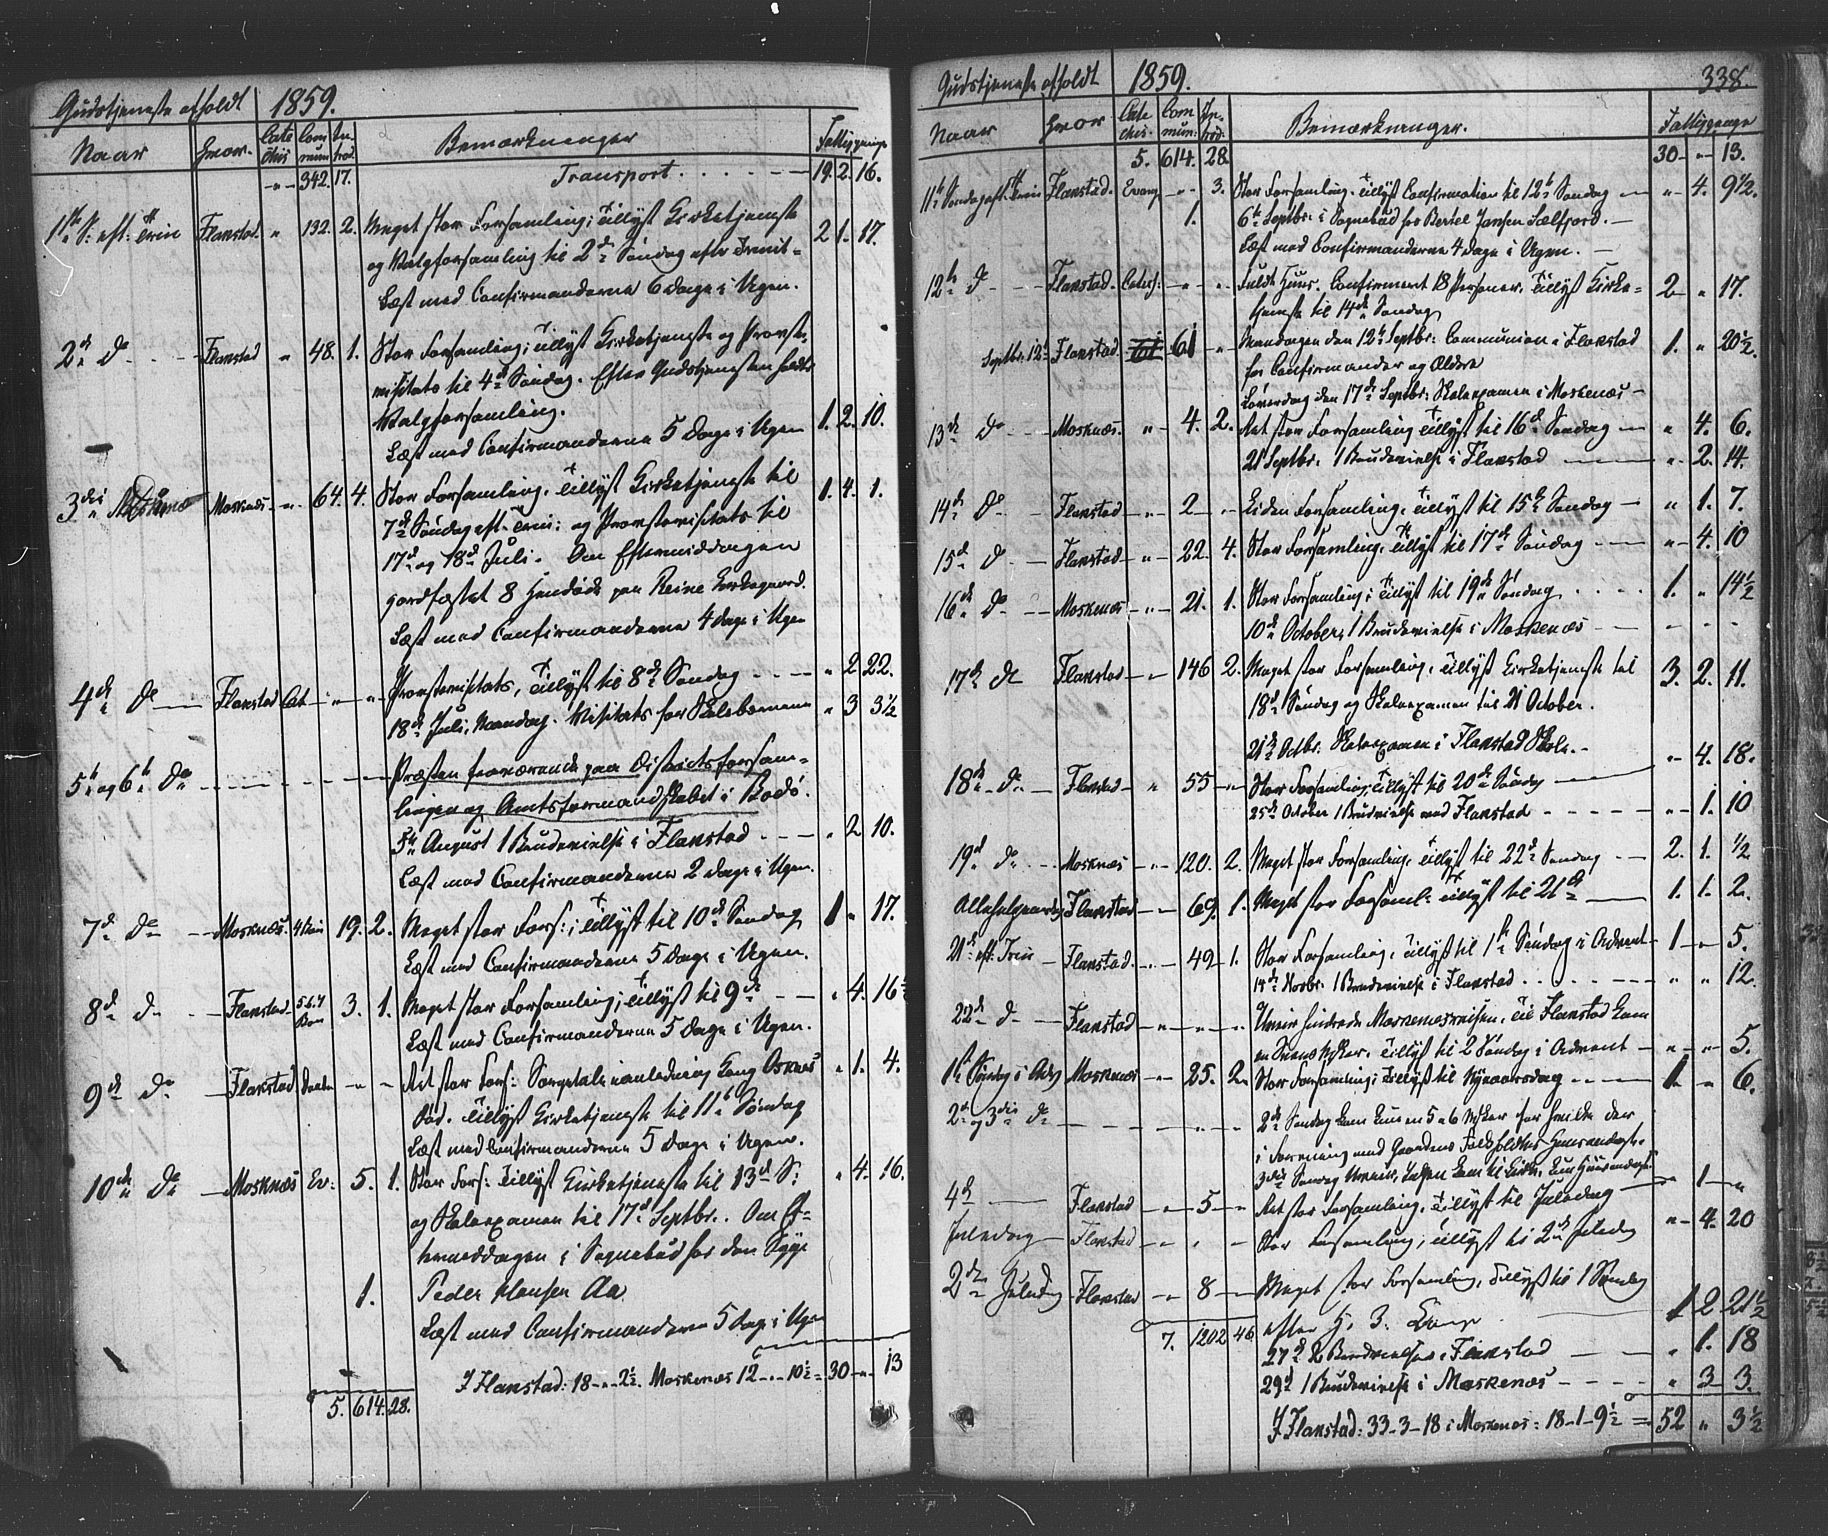 Gudstjeneste afholdt 1859.
Naar Hvor. Cate chis Com mun. In- trod. Bemærkninger Fattigpenge
-"- 342. 17. Transport . . . . . . 19. 2. 16.
1ste S: eft: Trin Flakstad. " 132. 2. Meget stor Forsamling; Tillyst Kirketjeneste 2 1. 17.
og Valgforsamling til 2d Søndag efter Trinit-
Læst med Confirmanderne 6 Dage i Ugen.
2d Do Flakstad " 48. 1. Stor Forsamling; Tillyst Kirketjeneste og Provste-
visitats til 4de Søndag. Efter Gudstjenesten holdt
Valgforsamling.
Læst med Confirmanderne 5 Dage i Ugen 1. 2. 10.
3die Moskenæs -"- 64. 4. Stor Forsamling. Tillyst Kirketjeneste til 1. 4. 1.
7de Søndag eft. Trin: og Provstevisitats til
17de og 18de Juli. Om Eftermiddagen
jordfæstet 8 Hendøde paa Reine Kirkegaard.
Læst med Confirmanderne 4 Dage i Ugen
4de Do Flakstad Cat - " - " Provstevisitats, Tillyst til 8de Søndag " 2 22.
18de Juli, Mandag. Visitats for Skolebørnene " 3 3½
5te og 6te Do Præsten fraværende paa Districtsforsam-
lingen og Amtsformandskabet i Bodö.
5te August 1 Brudevielse i Flakstad " 2 10.
Læst med Confirmanderne 2 Dage i Ugen.
7de Do Moskenæs. 19. 2. Meget stor Fors: ; Tillyst til 10de Søndag 1 " 17.
Læst med Confirmanderne 5 Dage i Ugen.
8de Do Flakstad 3. 1. Meget stor Forsamling; Tillyst til 9de " 4. 16½
Læst med Confirmanderne 5 Dage i Ugen.
9de Do Flakstad - - Ret stor Fors: Sørgetale i anledning Kong Oskars " 1. 4.
Død. Tillyst Kirketjeneste til 11te Søndag
Læst med Confirmanderne 5 Dage i Ugen.
10de Do Moskenæs Ev: 5. 1. Stor Fors: Tillyst Kirketjeneste til 13de S: " 4. 16.
og Skoleexamen til 17de Septbr. Om Ef-
termiddagen i Sognebud for den Syge
1. Peder Hansen Aa
Læst med Confirmanderne 5 Dage i Ugen
I Flakstad: 18 - " - 2½ Moskenæs 12 - " - 10½ = 30 - " - 13
5. 614. 28.
Gudstjeneste afholdt 1859. 338.
Naar Hvor Cate chis. Com mun. In- trod. Bemærkninger. Fattigpenge
5. 614. 28. 30 - " - 13.
11te Søndag eft. Trin Flakstad. Evang - " - 3. Stor Forsamling. Tillyst Confirmation til 12te Søndag " 4. 9½.
1. 6te Septbr. i Sognebud for Bertel Jansen Sælfjord.
Læst med Confirmanderne 4 Dage i Ugen.
12te Do Flakstad. Catech: - " - " Fuldt Huus. Confirmeret 18 Personer. Tillyst Kirke- 2 " 17.
tjeneste til 14de Søndag
Septbr. 12te Flakstad 61 - " Mandagen den 12te Septbr: Communion i Flakstad 1. " 20½.
for Confirmander og Ældre
Løverdag den 17de Septbr: Skoleexamen i Moskenæs
13de Do Moskenæs. " 4. 2. Ret stor Forsamling Tillyst til 16de Søndag " 4. 6.
21 Septbr. 1 Brudevielse i Flakstad " 2. 14.
14de Do Flakstad - " - 2 - " Liden Forsamling. Tillyst til 15de Søndag " 1. 7.
15de Do Flakstad - " - 22. 4. Stor Forsamling. Tillyst til 17de Søndag " 4. 10
16de Do Moskenæs - " - 21. 1. Stor Forsamling; Tillyst til 19de Søndag 1. " 14½
10de October, 1 Brudevielse i Moskenæs
17de Do Flakstad - " - 146 2. Meget stor Forsamling. Tillyst Kirketjeneste til 3. 2. 11.
18de Søndag og Skoleexamen til 21 October.
21de Octbr. Skoleexamen i Flakstad Skole.
18de Do Flakstad - " 55 - " Stor Forsamling; Tillyst til 20de Søndag " 4. 18.
25de October 1 Brudevielse ved Flakstad " 1. 10
19de Do Moskenæs - " - 120. 2. Meget stor Forsamling. Tillyst til 22de Søndag 2. 1. ½
Allehelgensdag Flakstad - " - 69. 1. Meget stor Forsaml: Tillyst til 21de 1. 1. 2.
21de eft. Trin Flakstad. - " - 49 1. Stor Forsamling, Tillyst til 1ste Søndag i Advent 1 " 5.
14de Novbr. 1 Brudevielse i Flakstad " " 12.
22de Do Flakstad - " - " - " Uveir hindrede Moskenæsreisen. Til Flakstad kom
en Tillyst til 2 Søndag i Advent " " 5.
1ste Søndag i Adv Moskenæs - " - 25. 2. Stor Forsamling; Tillyst til Nytaarsdag 1 " 6.
2de og 3die Do 2de Søndag kom kun en 5 a 6 for hvilke der
i Forening med Gaardens Folk holdtes Huusandagt.
3die Søndag Uveir, kom til Kirke. Kun Huusandagt.
4de Flakstad - " - 5 - " Ret stor Forsamling. Tillyst til Juledag " 1 "
Juledag Flakstad - " " - Stor Forsamling, Tillyst til 2de Juledag " 4. 20
2den Juledag Flakstad - " - 8 - Meget stor Forsamling. Tillyst til 1 Søndag
7. 1202 46 efter H. 3. Kong. 1 2 21½
27de 2 Brudevielser i Flakstad " 1. 18
29de 1 Brudevielse i Moskenæs " 3 3.
I Flakstad: 33-3-18 i Moskenæs: 18-1-9½ = 52 " 3½